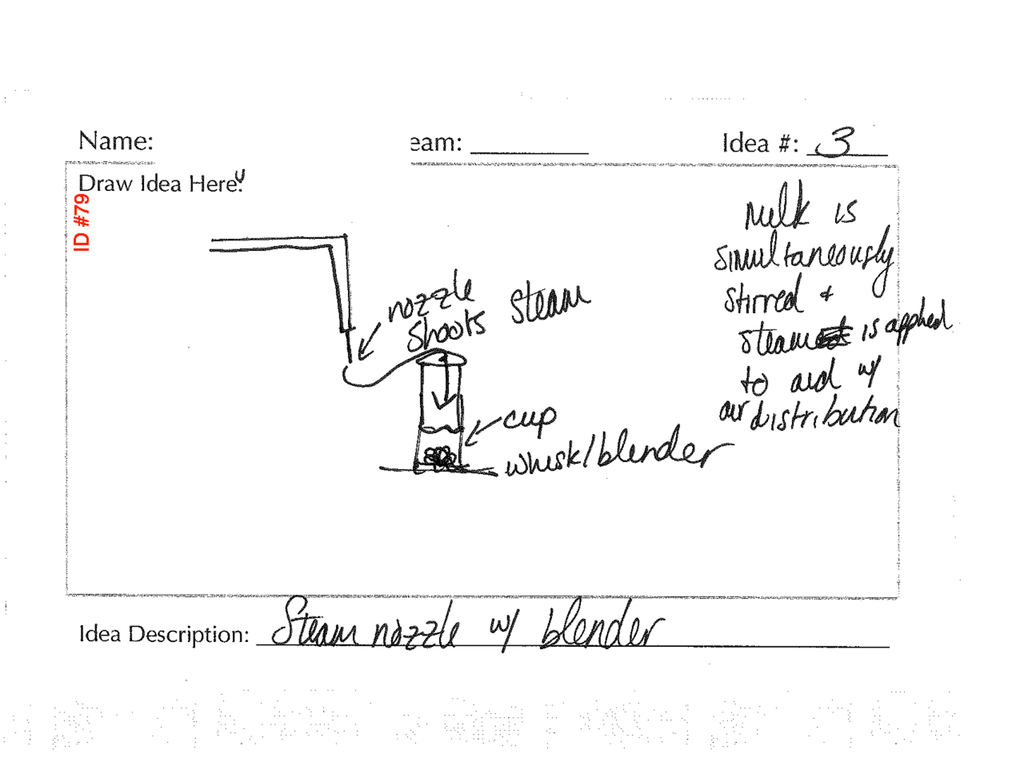 Name:
eam:
Idea #: 3
Draw Idea Here:
ID #79
nozzle
shoots steam
cup
whisk/blender
Milk is
simultaneously
stirred +
steam is applied
to aid w/
air distribution
Idea Description: Steam nozzle w/ blender